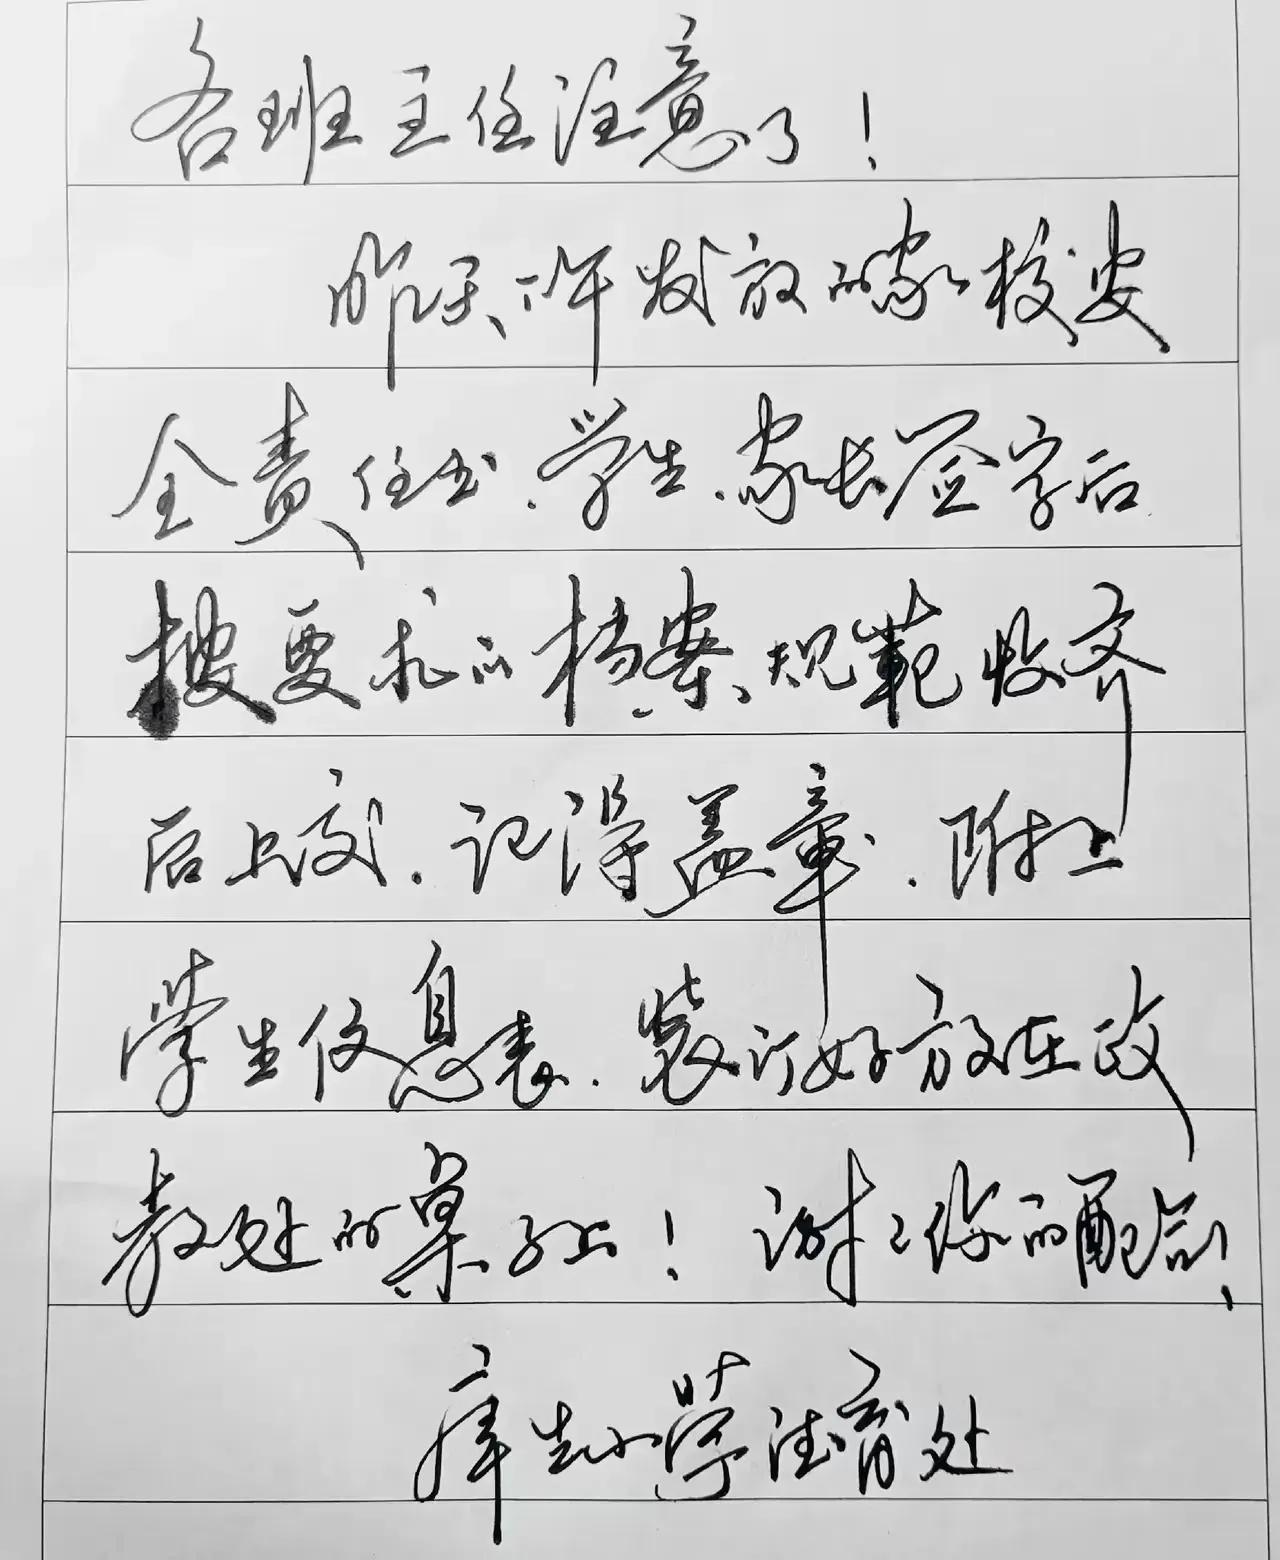 各班主任注意了！
昨天下午发放的家校安
全责任书，学生、家长签字后
按要求的档案、规範收齐
后上交，记得盖章，附上
学生信息表，装订好放在政
教处的桌子上！谢谢你的配合！
库生小学德育处